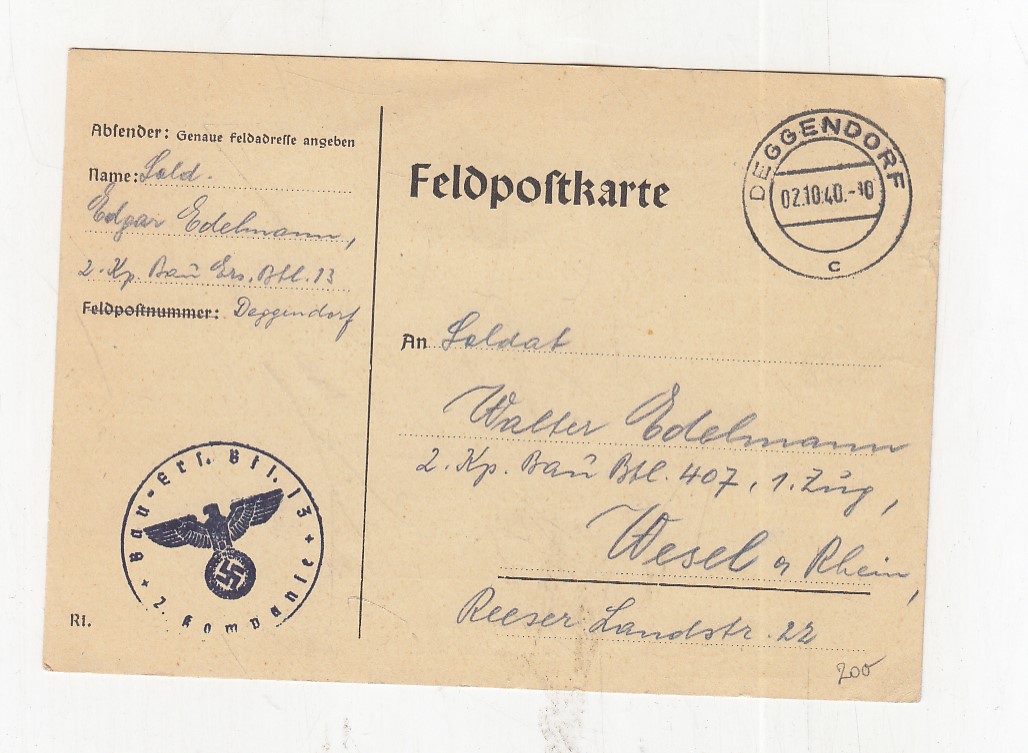 Absender: Genaue Feldadresse angeben
Name: Sold.
Edgar Edelmann,
2. Kp. Bau Ers. Btl. 13
Feldpostnummer: Deggendorf
Bau-Ers. Btl. 13
2. Kompanie
Ri.
Feldpostkarte
DEGGENDORF
02.10.40.-10
c
An Soldat
Walter Edelmann
2. Kp. Bau Btl. 407, 1. Zug,
Wesel a Rhein,
Reeser Landstr. 22
200